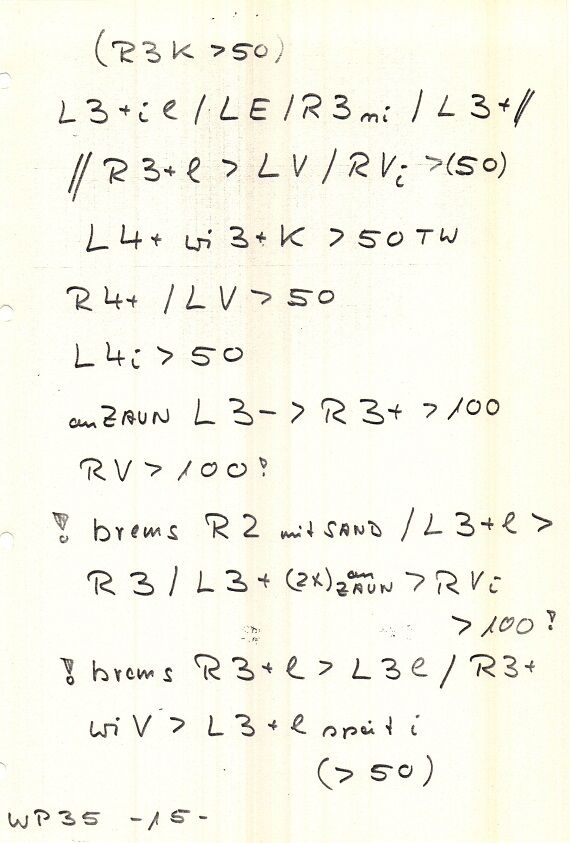 (R3K >50)
L3+il / LE / R3 mi / L3+//
// R3+l > LV / RVi >(50)
L4+ wi 3+K > 50 TW
R4+ / LV > 50
L4i > 50
an ZAUN L3- > R3+ >100
RV > 100!
! brems R2 mit SAND / L3+l >
R3 / L3+ (2x) an ZAUN > RVi
> 100!
! brems R3+l > L3l / R3+
wi V > L3+l spät i
(> 50)
WP35 -15-